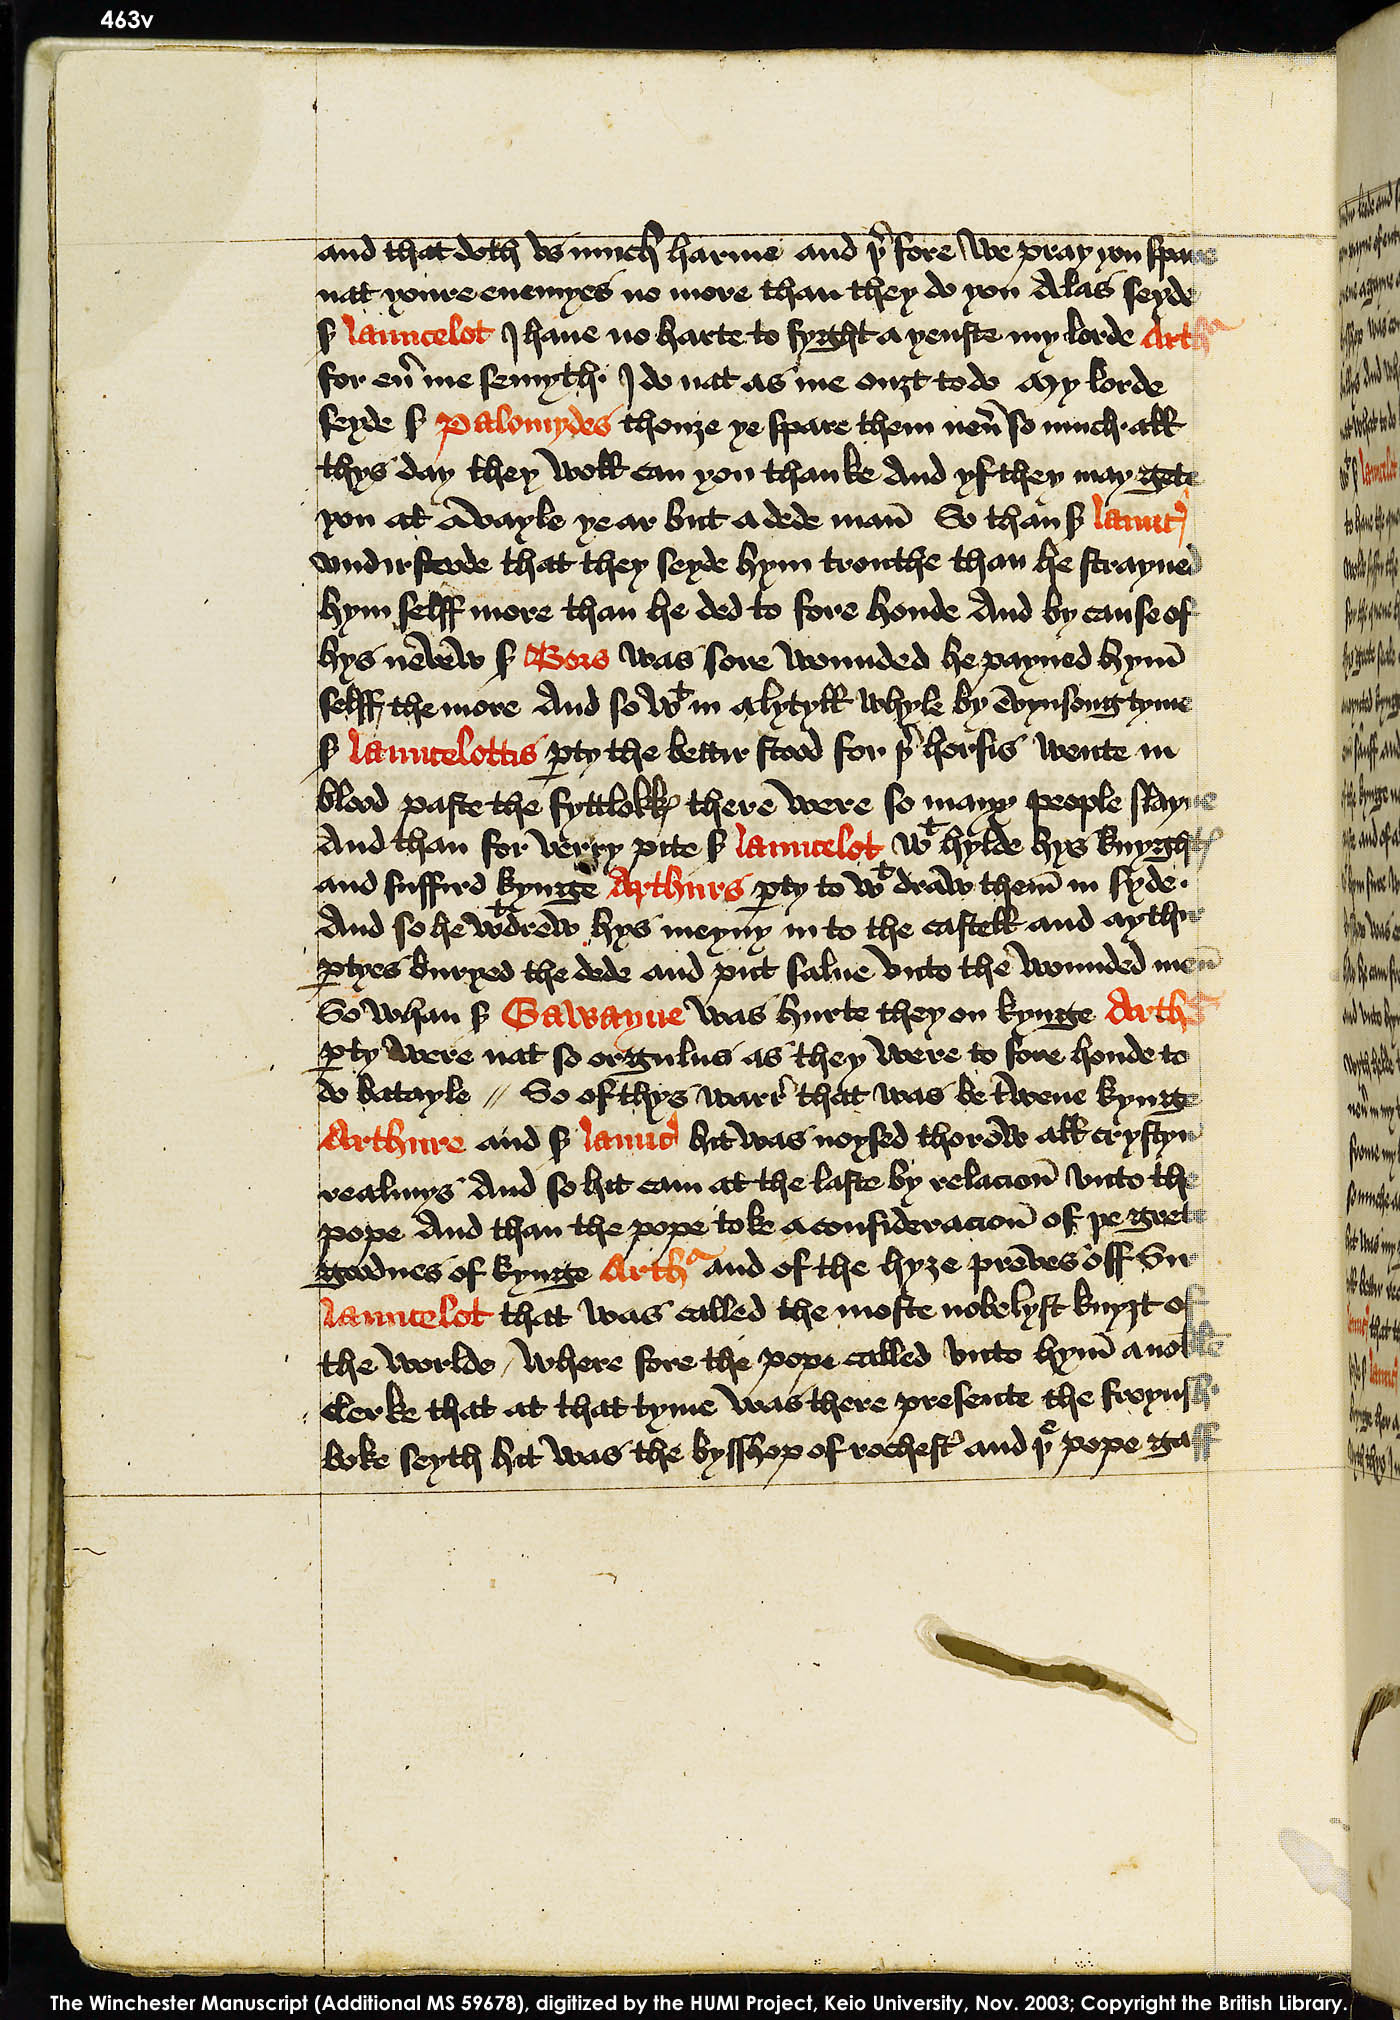 463v
and that doth vs much harme and þ̉ fore we pray you spare
nat youre enemyes no more than they do you Alas seyde
s̉ launcelot I haue no harte to fyght a yenste my lorde Arthᵃ
for eủ me semyth I do nat as me ouȝt to do My lorde
seyde s̉ Palomydes thouȝe ye spare them neủ so much all
thys day they woll can you thanke And yf they may gete
you at avayle ye ar but a dede man̄ So than s̉ launc̉
vndirstoode that they seyde hym trouthe than he strayned
hym selff more than he ded to fore honde And by cause of
hys nevew s̉ Bors was sore wounded he payned hym̄
selff the more And so wᵗ in a lytyll whyle by evynsong tyme
s̉ launcelottis ꝑty the bettir stood for þ̉ horsis wente in
blood paste the fyttlokkꝭ there were so many people slayne
And than for verry pite s̉ launcelot wᵗ hylde hys knyghtꝭ
and suffird kynge Arthurs ꝑty to wᵗ draw them̄ in syde.
And so he wᵗdrew hys meyny in to the castell and aythir
ꝑtyes buryed the dede and put salue vnto the wounded men̄
So whan s̉ Gawayne was hurte they on kynge Arthᵃ
ꝑty were nat so orgulus as they were to fore honde to
do batayle // So of thys warr̉ that was be twene kynge
Arthure and s̉ launc̉ hit was noysed thorow all crystyn
realmys And so hit cam at the laste by relacion̄ vnto the
pope And than the pope toke a consideracion̄ of þe grete
goodnes of kynge Arthᵃ and of the hyȝe proves off Sir
launcelot that was called the moste nobelyst knyȝt of
the worlde / where fore the pope called vnto hym̄ a noble
clerke that at that tyme was there presente the freynsh
boke seyth hit was the bysshop of rochest̉ and þᵉ pope gaff
The Winchester Manuscript (Additional MS 59678), digitized by the HUMI Project, Keio University, Nov. 2003; Copyright the British Library.